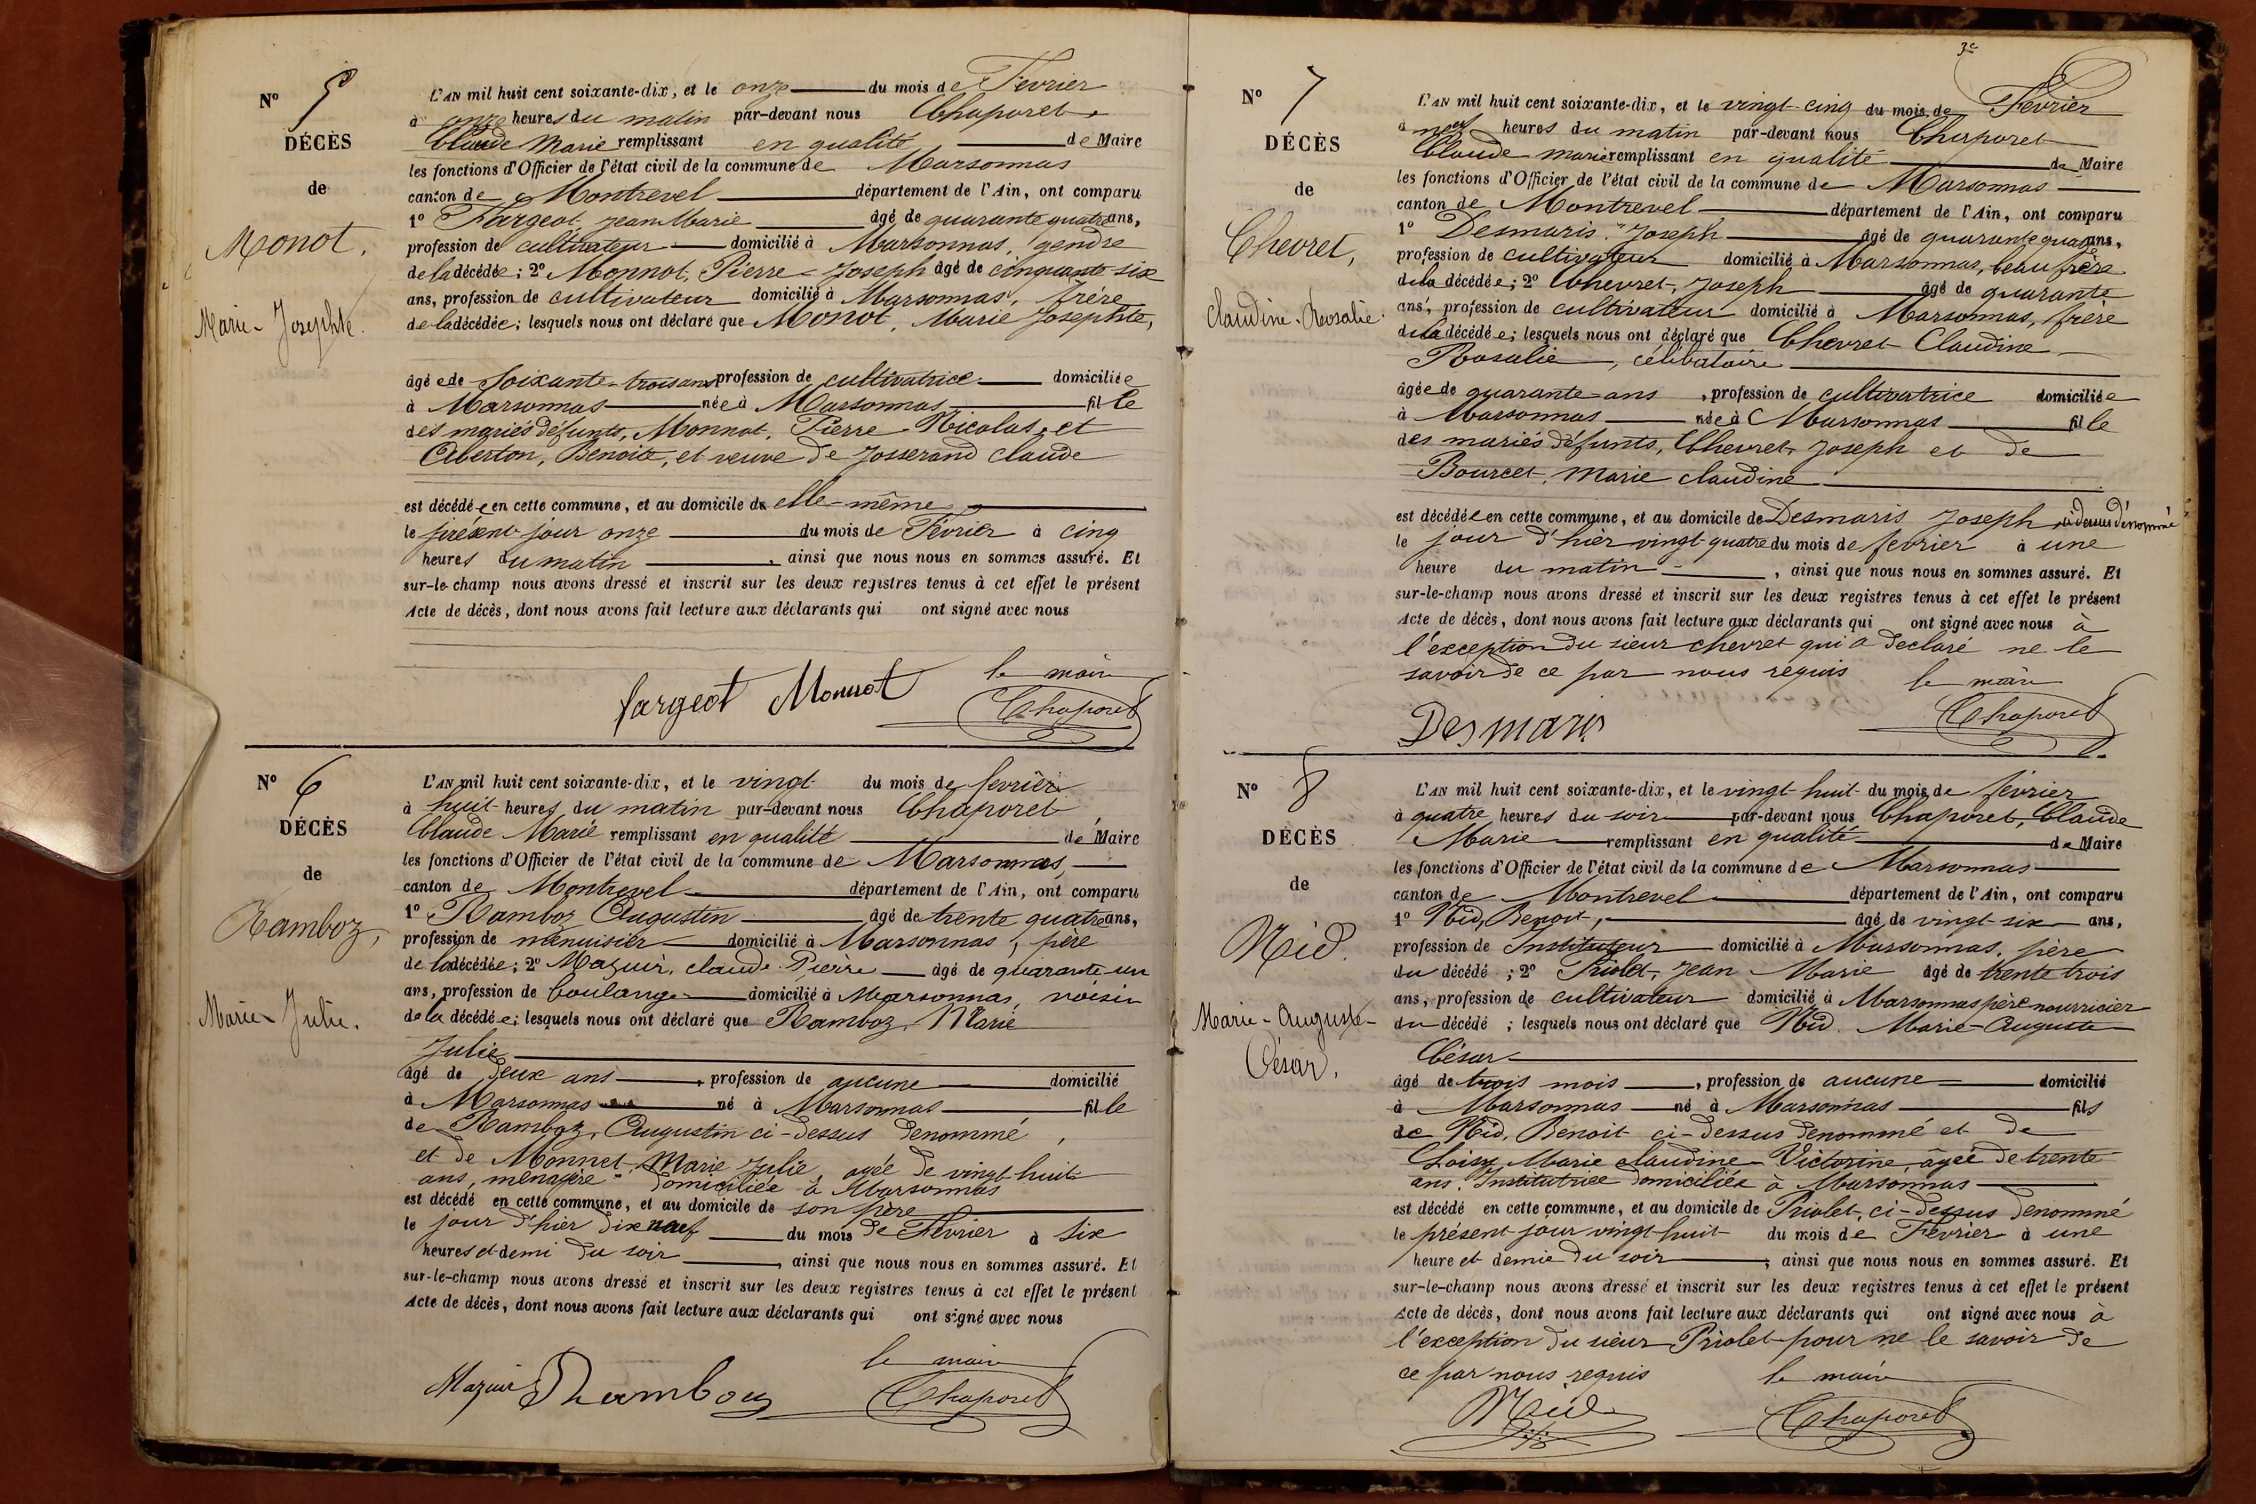 N° 5
DÉCÈS
de
Monot,
Marie-Josephte.
L'AN mil huit cent soixante-dix, et le onze du mois de Fevrier
à onze heures du matin par-devant nous Chaporet
Claude Marie remplissant en qualité de Maire
les fonctions d'Officier de l'état civil de la commune de Marsonnas
canton de Montrevel département de l'Ain, ont comparu
1° Fargeot Jean Marie âgé de quarante quatre ans,
profession de cultivateur domicilié à Marsonnas, gendre
de la décédée; 2° Monnot, Pierre-Joseph âgé de cinquante six
ans, profession de cultivateur domicilié à Marsonnas, frére
de la décédée; lesquels nous ont déclaré que Monot, Marie Josephte,
âgée de Soixante-trois ans profession de cultivatrice domiciliée
à Marsonnas née à Marsonnas fille
des mariés défunts, Monnot, Pierre-Nicolas, et
Aberton, Benoite, et veuve de Josserand Claude
est décédée en cette commune, et au domicile de elle-même
le présent jour onze du mois de Février à cinq
heures du matin, ainsi que nous nous en sommes assuré. Et
sur-le-champ nous avons dressé et inscrit sur les deux registres tenus à cet effet le présent
Acte de décès, dont nous avons fait lecture aux déclarants qui ont signé avec nous
le maire
fargeot Monnot Chaporet
N° 6
DÉCÈS
de
Ramboz,
Marie-Julie.
L'AN mil huit cent soixante-dix, et le vingt du mois de fevrier
à huit heures du matin par-devant nous Chaporet
Claude Marie remplissant en qualité de Maire
les fonctions d'Officier de l'état civil de la commune de Marsonnas,
canton de Montrevel département de l'Ain, ont comparu
1° Ramboz Augustin âgé de trente quatre ans,
profession de menuisier domicilié à Marsonnas, père
de la décédée; 2° Mazuir, claude Pierre âgé de quarante-un
ans, profession de boulanger domicilié à Marsonnas, voisin
de la décédée; lesquels nous ont déclaré que Ramboz, Marie
Julie
âgé de deux ans, profession de aucune domicilié
à Marsonnas né à Marsonnas fille
de Ramboz, Augustin ci-dessus denommé,
et de Monnet, Marie Julie agée de vingt-huit
ans, ménagère domiciliée à Marsonnas
est décédé en cette commune, et au domicile de son père
le jour d'hier dix neuf du mois de Février à six
heures et demi du soir, ainsi que nous nous en sommes assuré. Et
sur-le-champ nous avons dressé et inscrit sur les deux registres tenus à cet effet le présent
Acte de décès, dont nous avons fait lecture aux déclarants qui ont signé avec nous
le maire
Mazuir Rhambou Chaporet
3e
N° 7
DÉCÈS
de
Chevret,
Claudine-Rosalie.
L'AN mil huit cent soixante-dix, et le vingt-cinq du mois de Février
à neuf heures du matin par-devant nous Chaporet
Claude marie remplissant en qualité de Maire
les fonctions d'Officier de l'état civil de la commune de Marsonnas
canton de Montrevel département de l'Ain, ont comparu
1° Desmaris Joseph âgé de quarante quatre ans,
profession de cultivateur domicilié à Marsonnas, beau frère
de la décédée; 2° Chevret, Joseph âgé de quarante
ans, profession de cultivateur domicilié à Marsonnas, frère
de la décédée; lesquels nous ont déclaré que Chevret Claudine
Rosalie, célibataire
âgée de quarante ans, profession de cultivatrice domiciliée
à Marsonnas née à Marsonnas fille
des mariés défunts, Chevret, Joseph et de
Bourcet, Marie claudine
est décédée en cette commune, et au domicile de Desmaris Joseph ci dessus dénommé
le jour d'hier vingt-quatre du mois de fevrier à une
heure du matin, ainsi que nous nous en sommes assuré. Et
sur-le-champ nous avons dressé et inscrit sur les deux registres tenus à cet effet le présent
Acte de décès, dont nous avons fait lecture aux déclarants qui ont signé avec nous à
l'exception du sieur chevret qui a declaré ne le
savoir de ce par nous requis
le maire
Desmaris Chaporet
N° 8
DÉCÈS
de
Nid.
Marie-Auguste-
César.
L'AN mil huit cent soixante-dix, et le vingt huit du mois de février
à quatre heures du soir par-devant nous Chaporet, Claude
Marie remplissant en qualité de Maire
les fonctions d'Officier de l'état civil de la commune de Marsonnas
canton de Montrevel département de l'Ain, ont comparu
1° Nid, Benoit, âgé de vingt-six ans,
profession de Instituteur domicilié à Marsonnas, père
du décédé; 2° Priolet, Jean Marie âgé de trente trois
ans, profession de cultivateur domicilié à Marsonnas père nourricier
du décédé; lesquels nous ont déclaré que Nid. Marie-Auguste
César
âgé de trois mois, profession de aucune domicilié
à Marsonnas né à Marsonnas fils
de Nid, Benoit ci-dessus dénommé et de
Loisy Marie claudine Victorine, agée de trente
ans. Institutrice domiciliée à Marsonnas
est décédé en cette commune, et au domicile de Priolet, ci-dessus denommé
le présent jour vingt-huit du mois de Fevrier à une
heure et demie du soir, ainsi que nous nous en sommes assuré. Et
sur-le-champ nous avons dressé et inscrit sur les deux registres tenus à cet effet le présent
Acte de décès, dont nous avons fait lecture aux déclarants qui ont signé avec nous à
l'exception du sieur Priolet pour ne le savoir de
ce par nous requis le maire
Nid Chaporet